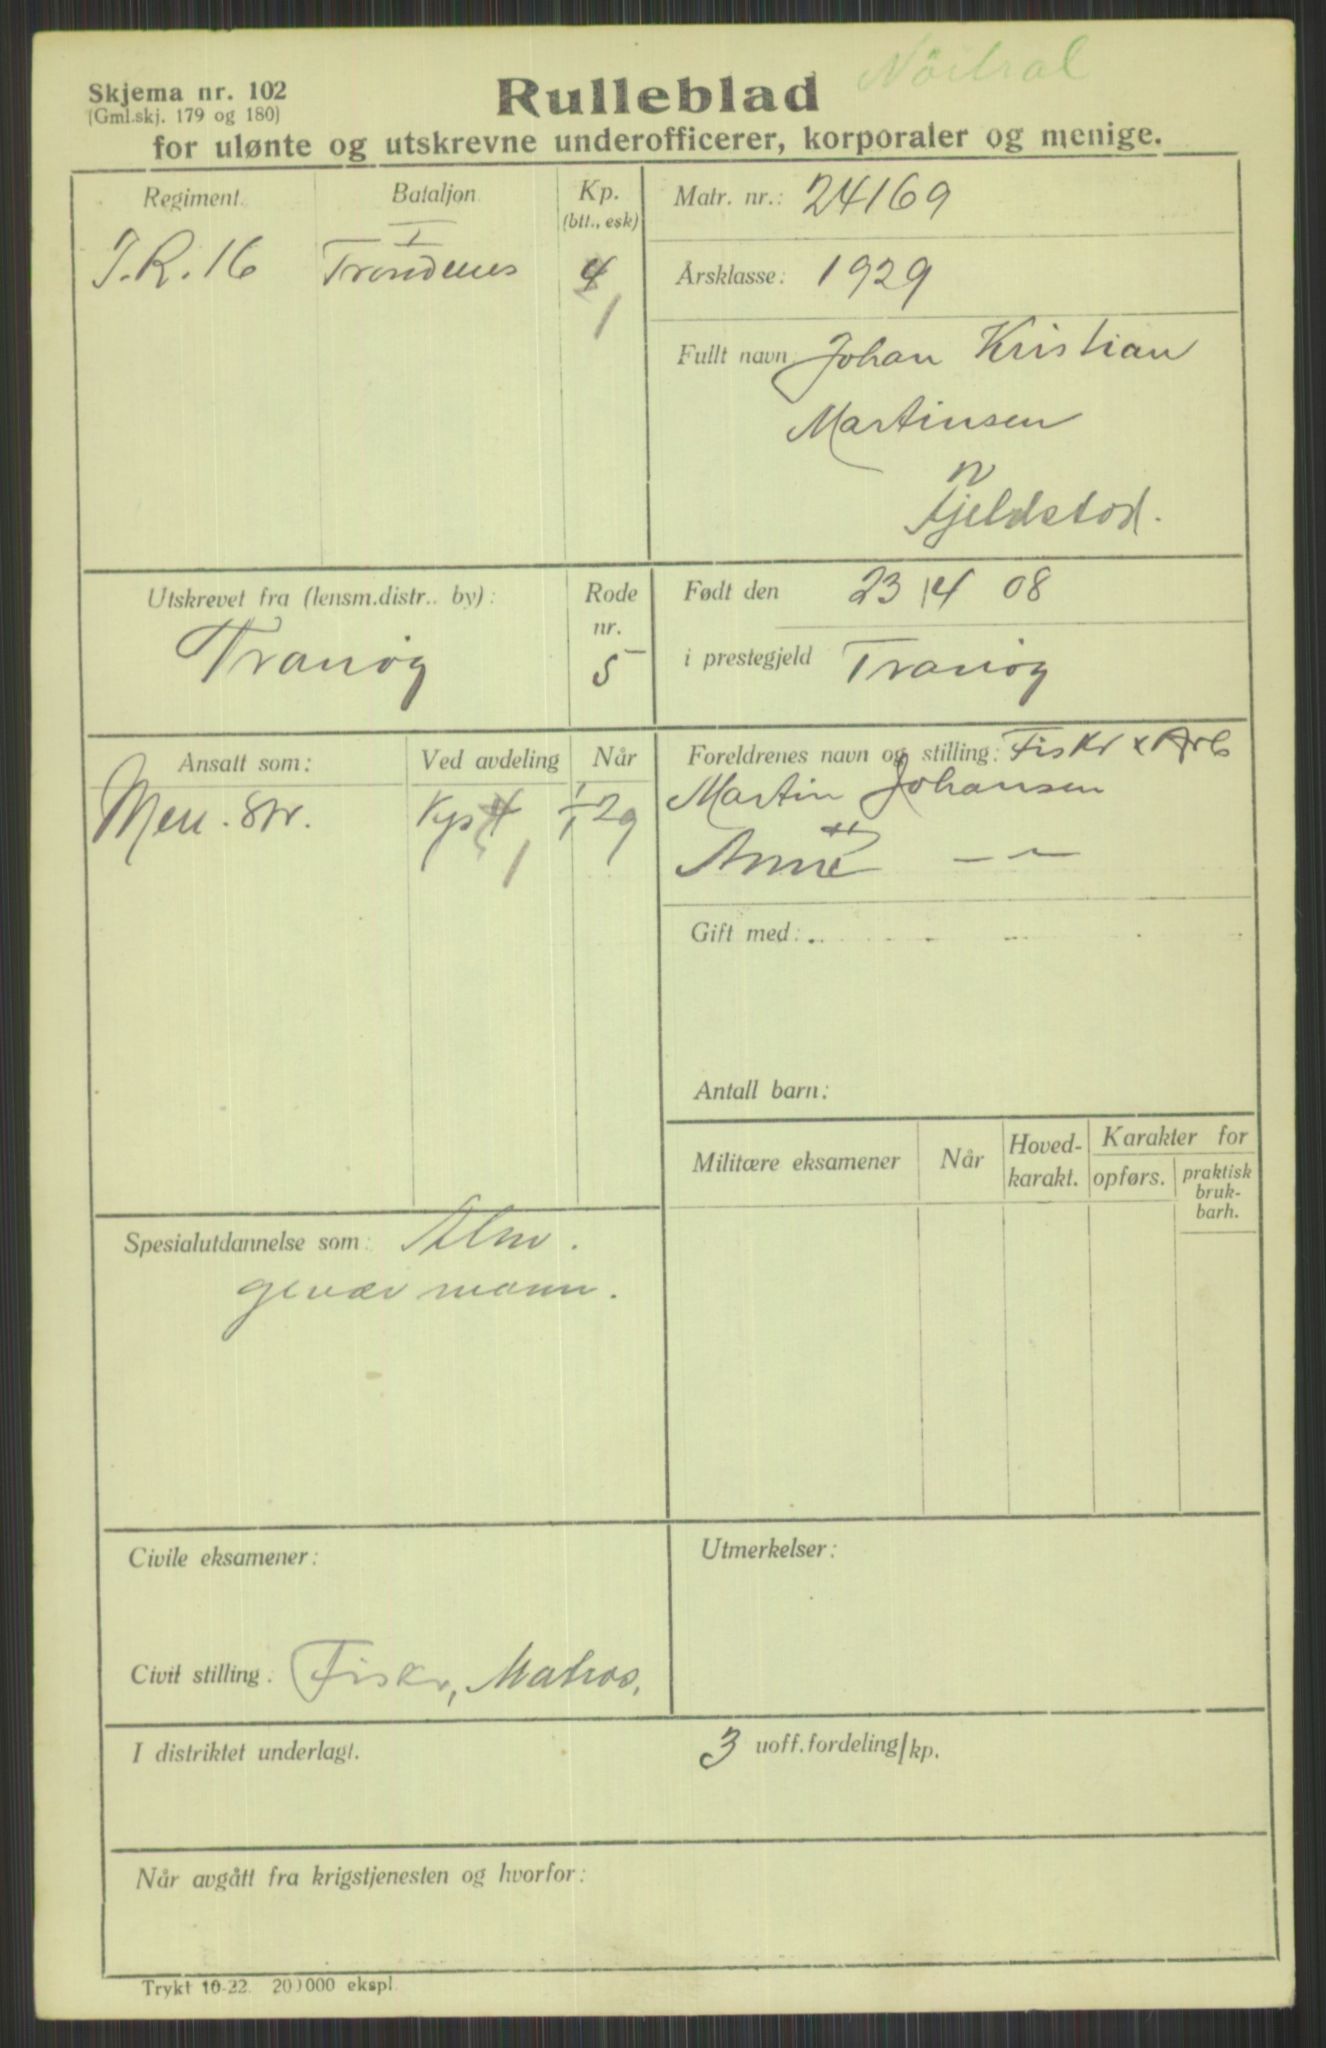 Nöitral
Skjema nr. 102
(Gml.skj. 179 og 180)
Rulleblad
for ulønte og utskrevne underofficerer, korporaler og menige.
Regiment.
I.R. 16
Bataljon
I
Trondenes
Kp.
(btt., esk)
4
1
Matr. nr.: 24169
Årsklasse: 1929
Fullt navn: Johan Kristian
Martinsen
N
Fjeldstad.
Utskrevet fra (lensm.distr.. by):
Tranöy
Rode
nr.
5
Født den 23/4 08
i prestegjeld Tranöy
Ansatt som:
Men. str.
Ved avdeling
Kp 4
1
Når
1/1 29
Foreldrenes navn og stilling: Fiskr x Arb
Martin Johansen
Anne — —
Gift med:
Antall barn:
Militære eksamener
Når
Hoved-
karakt.
Karakter for
opførs.
praktisk
bruk-
barh.
Spesialutdannelse som:
gevær mann.
Civile eksamener:
Utmerkelser:
Civil stilling: Fiskr, Matros,
I distriktet underlagt.
3 uoff.fordeling/kp.
Når avgått fra krigstjenesten og hvorfor:
Trykt 10-22. 20)000 ekspl.